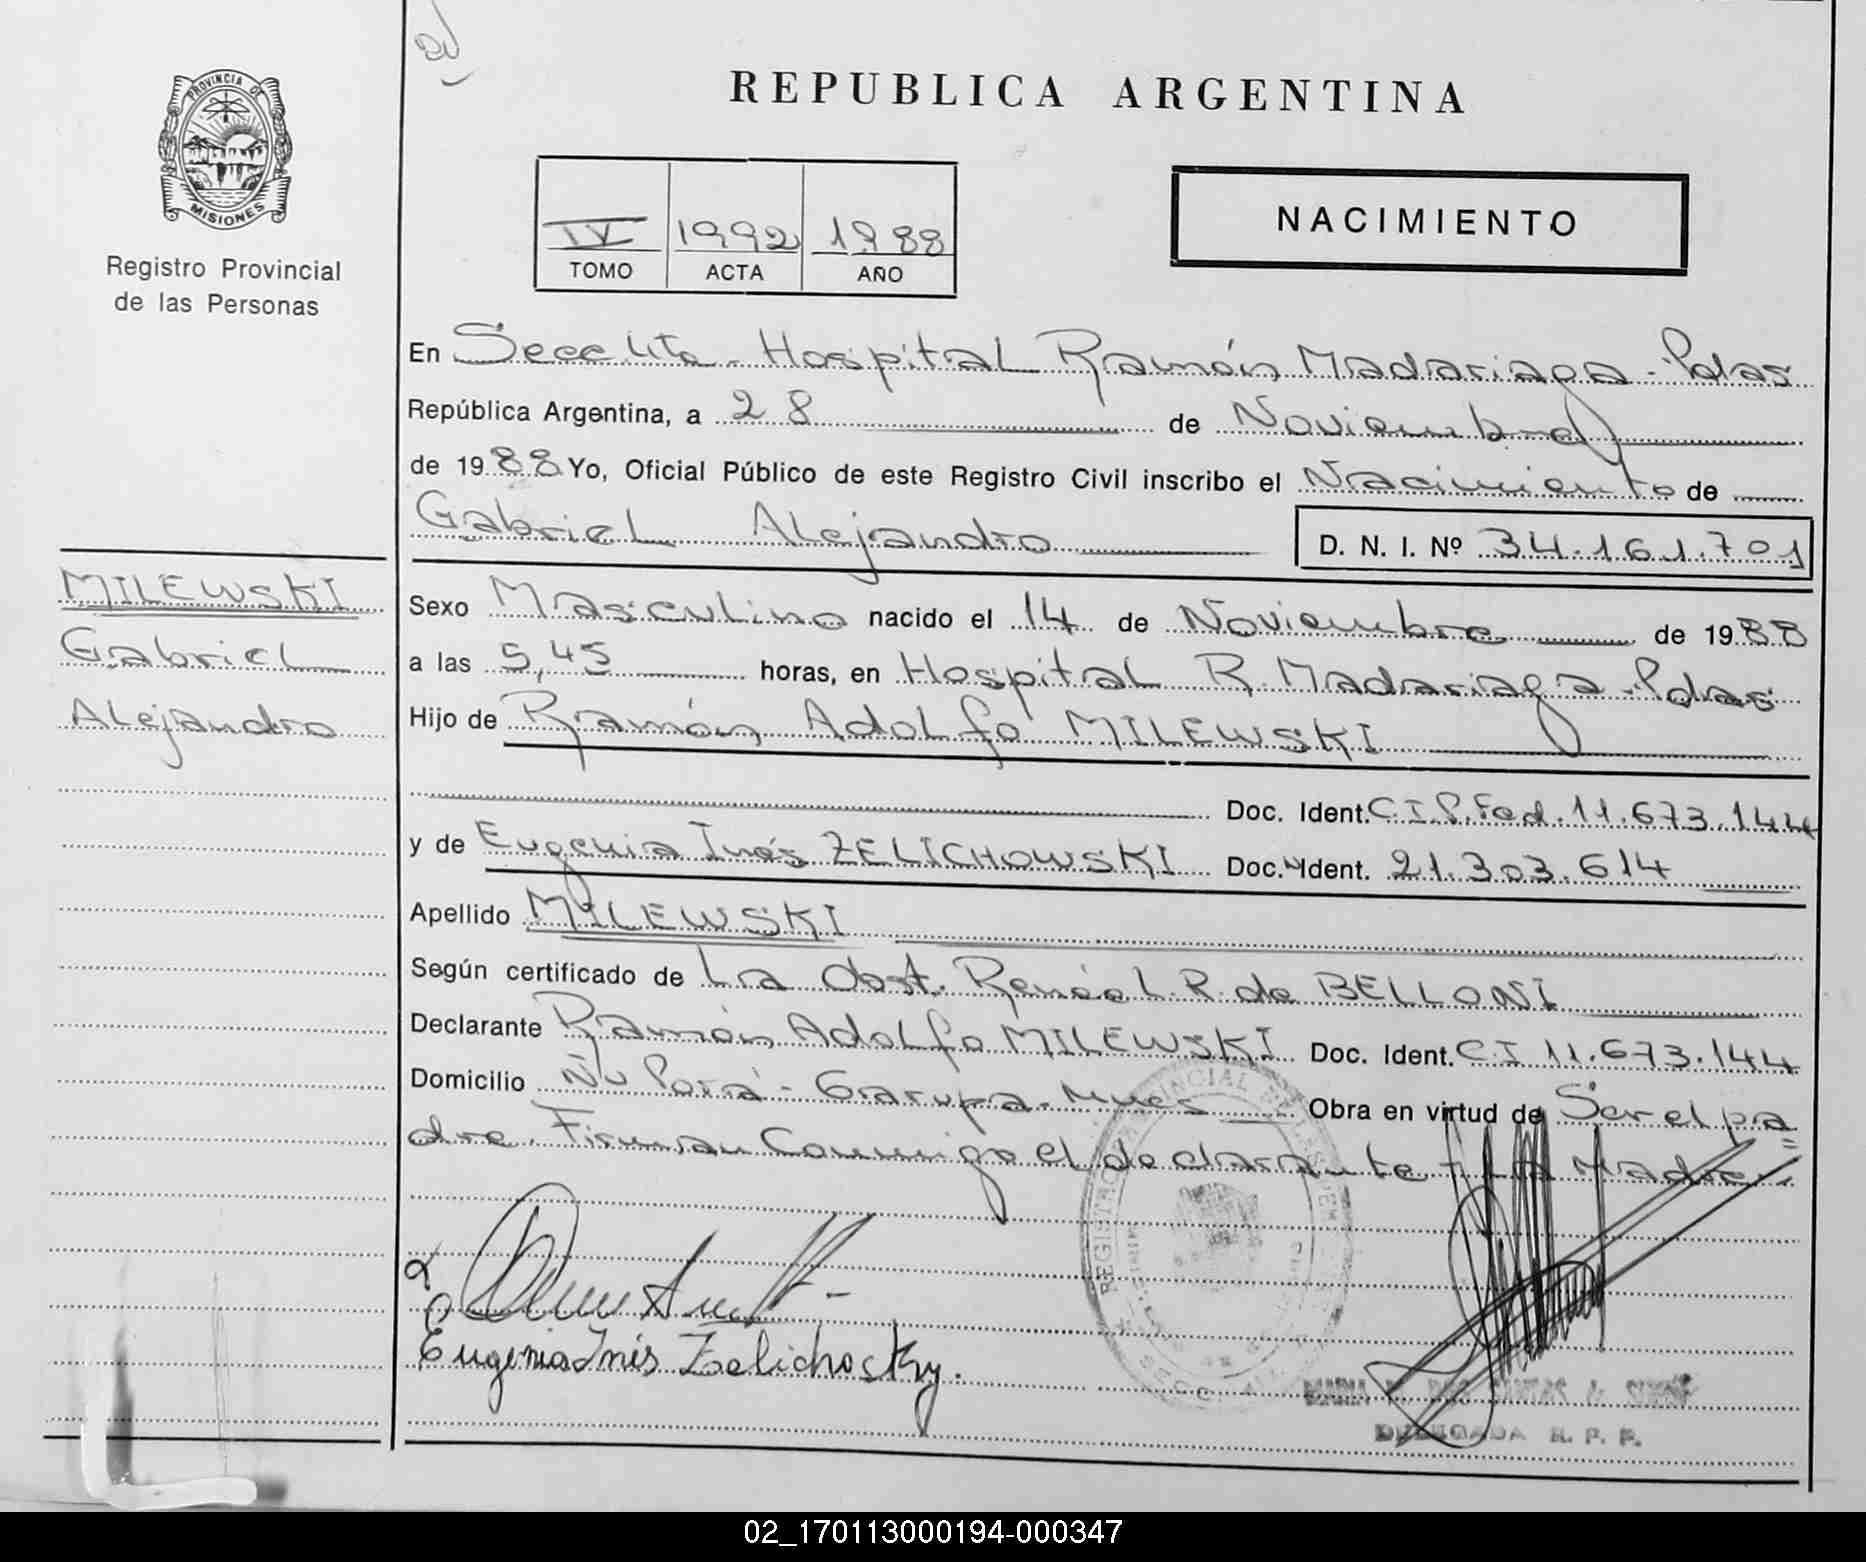 REPUBLICA ARGENTINA
PROVINCIA DE
MISIONES
Registro Provincial
de las Personas
IV 1992 1988
TOMO ACTA AÑO
NACIMIENTO
En Secc 4ta - Hospital Ramón Madariaga - Pdas
República Argentina, a 28 de Noviembre
de 1988 Yo, Oficial Público de este Registro Civil inscribo el Nacimiento de
Gabriel Alejandro D. N. I. Nº 34.161.701
MILEWSKI
Gabriel
Alejandro
Sexo Masculino nacido el 14 de Noviembre de 1988
a las 5,45 horas, en Hospital R. Madariaga - Pdas
Hijo de Ramón Adolfo MILEWSKI
Doc. Ident. C.I.P.Fed. 11.673.144
y de Eugenia Inés ZELICHOWSKI Doc. Ident. 21.303.614
Apellido MILEWSKI
Según certificado de La Obst. Renée L. R. de BELLONI
Declarante Ramón Adolfo MILEWSKI Doc. Ident. C.I 11.673.144
Domicilio Ñu Porá - Garupa - Mnes Obra en virtud de Ser el pa=
dre. Firman Conmigo el declarante y La Madre.-
Eugenia Inés Zelichosky.
REGISTRO PROVINCIAL DE LAS PERSONAS
DELEGADA R. P. P.
02_170113000194-000347